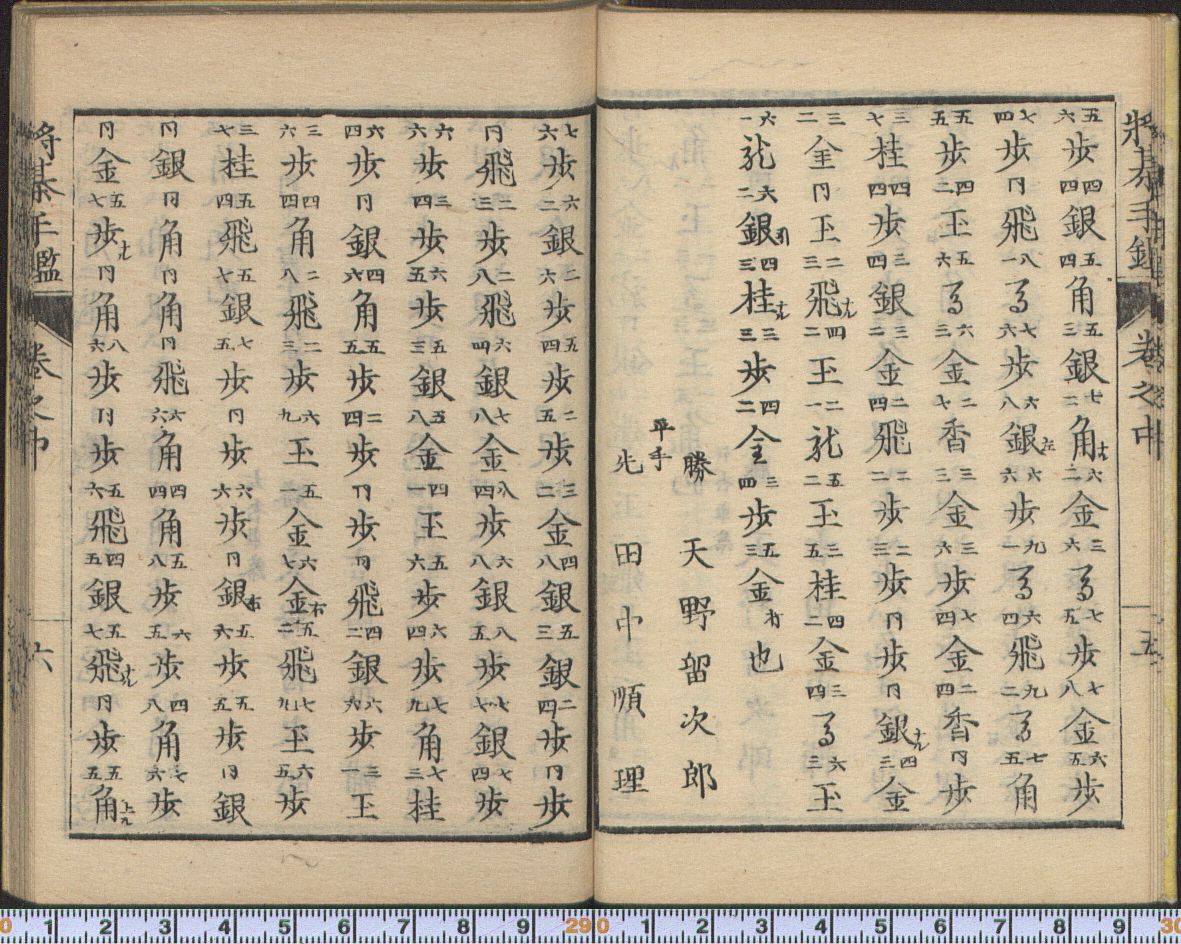 将棊手鑑 巻之中 五
五六歩四四銀五四角五三銀七二角打六二金三六馬七五歩七八金六五歩
七四歩同飛八一馬七六歩六八銀左六六歩九一馬六四飛九二馬七五角
五五歩四二玉五六馬六三金二七香三三金三六歩七四金二四香同歩
三七桂四四歩三四銀三二金二四飛二二歩二三歩同歩同銀成四三金
三二全同玉二三飛成四二玉二一龍五二玉二五桂四二金三四馬六三玉
六一龍六二銀引四三桂成三三歩四二全三四歩五三金打也
勝 天野留次郎
平手
先 田中順理
七六歩六二銀二六歩五四歩二五歩三二金四八銀五三銀二四歩同歩
同飛二三歩二八飛六四銀七八金八四歩六八銀八五歩七七銀七四歩
六六歩三四歩六五歩五三銀五八金四一玉五六歩六四歩七九角七三桂
六四歩同銀四六角五五歩二四歩同歩同飛四二銀六六歩三一玉
三六歩四四角二八飛二三歩六九玉五金六七金右五二飛七九玉六五歩
三七桂五四飛五七銀七五歩同歩六六歩同銀右五六歩五五歩同銀
同銀同角同角同飛六六角四四角五八歩六五歩四八角七六歩
同金五七歩成同角八六歩同歩五六飛四五銀五七飛成同歩五五角上
将棊手鑑 巻之中 六